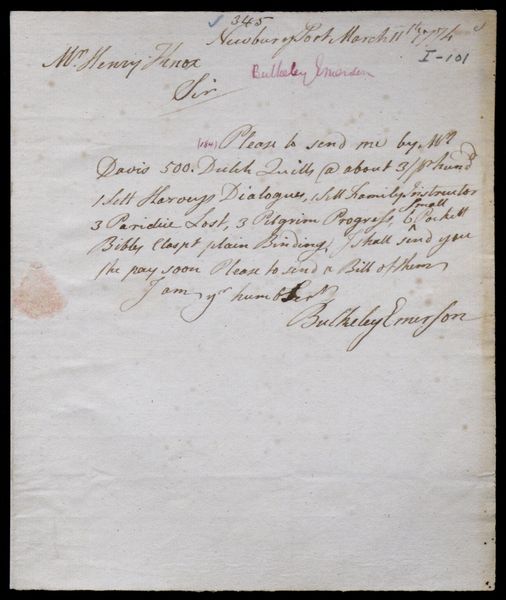 345
Newbury Port March 11th 1774
I-101
Mr. Henry Knox
Bulkeley Emerson
Sir
(184) Please to send me by Mr.
Davis 500. Dutch Quills @ about 3/ pr hund
1 Sett Harveys Dialogues, 1 Sett Family Instructor
3 Paridice Lost, 3 Pilgrim Progress, 6 small Pockett
Bibles Claspt plain Binding, I shall send you
the pay soon Please to send a Bill of them
I am yr humb Servt
Bulkeley Emerson